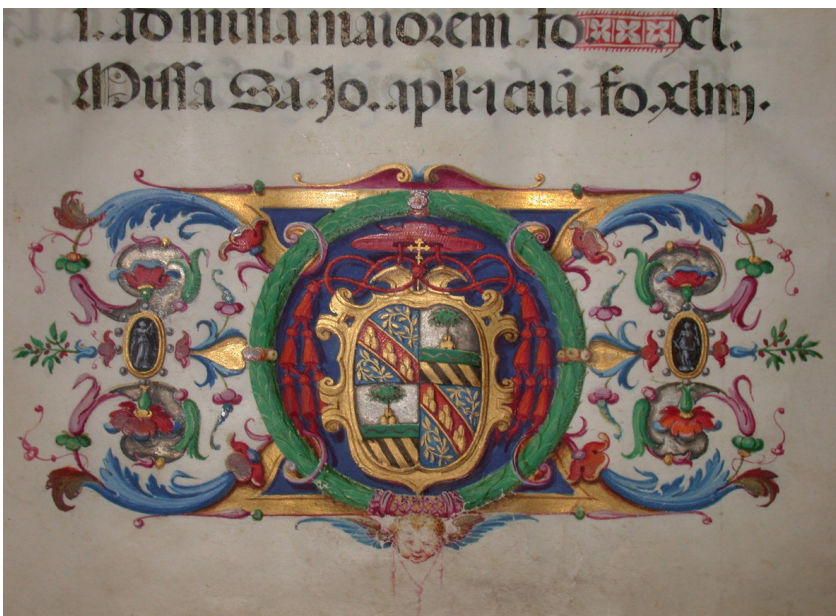 i. ad missa maiorem. fo. xl.
Missa S̃a. Jo. apli. i cuã. fo. xliiij.